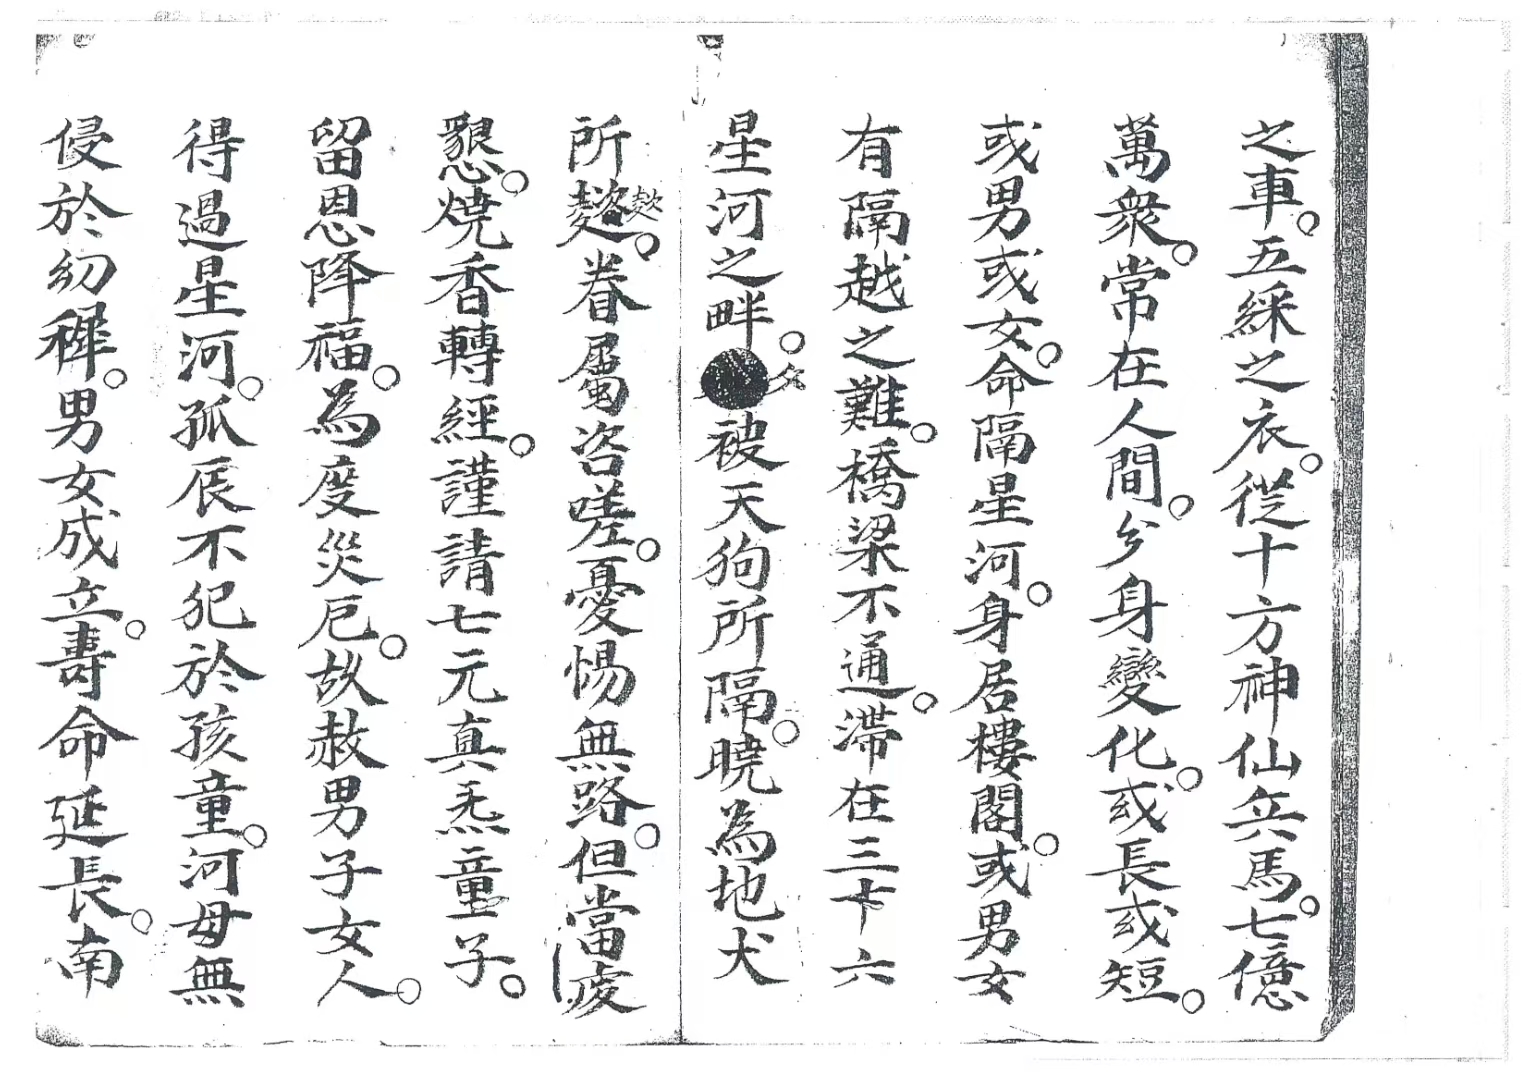 之車。五綵之衣。從十方神仙兵馬。七億
萬衆。常在人間。分身變化。或長或短。
或男或女。命隔星河。身居樓閣。或男女
有隔越之難。橋梁不通。滯在三十六
星河之畔。夕被天狗所隔。曉為地犬
所欺。眷屬咨嗟。憂惕無路。但當虔
懇。燒香轉經。謹請七元真炁童子。
留恩降福。為度災厄。故赦男子女人。
得過星河。孤辰不犯於孩童。河母無
侵於幼稺。男女成立。壽命延長。南